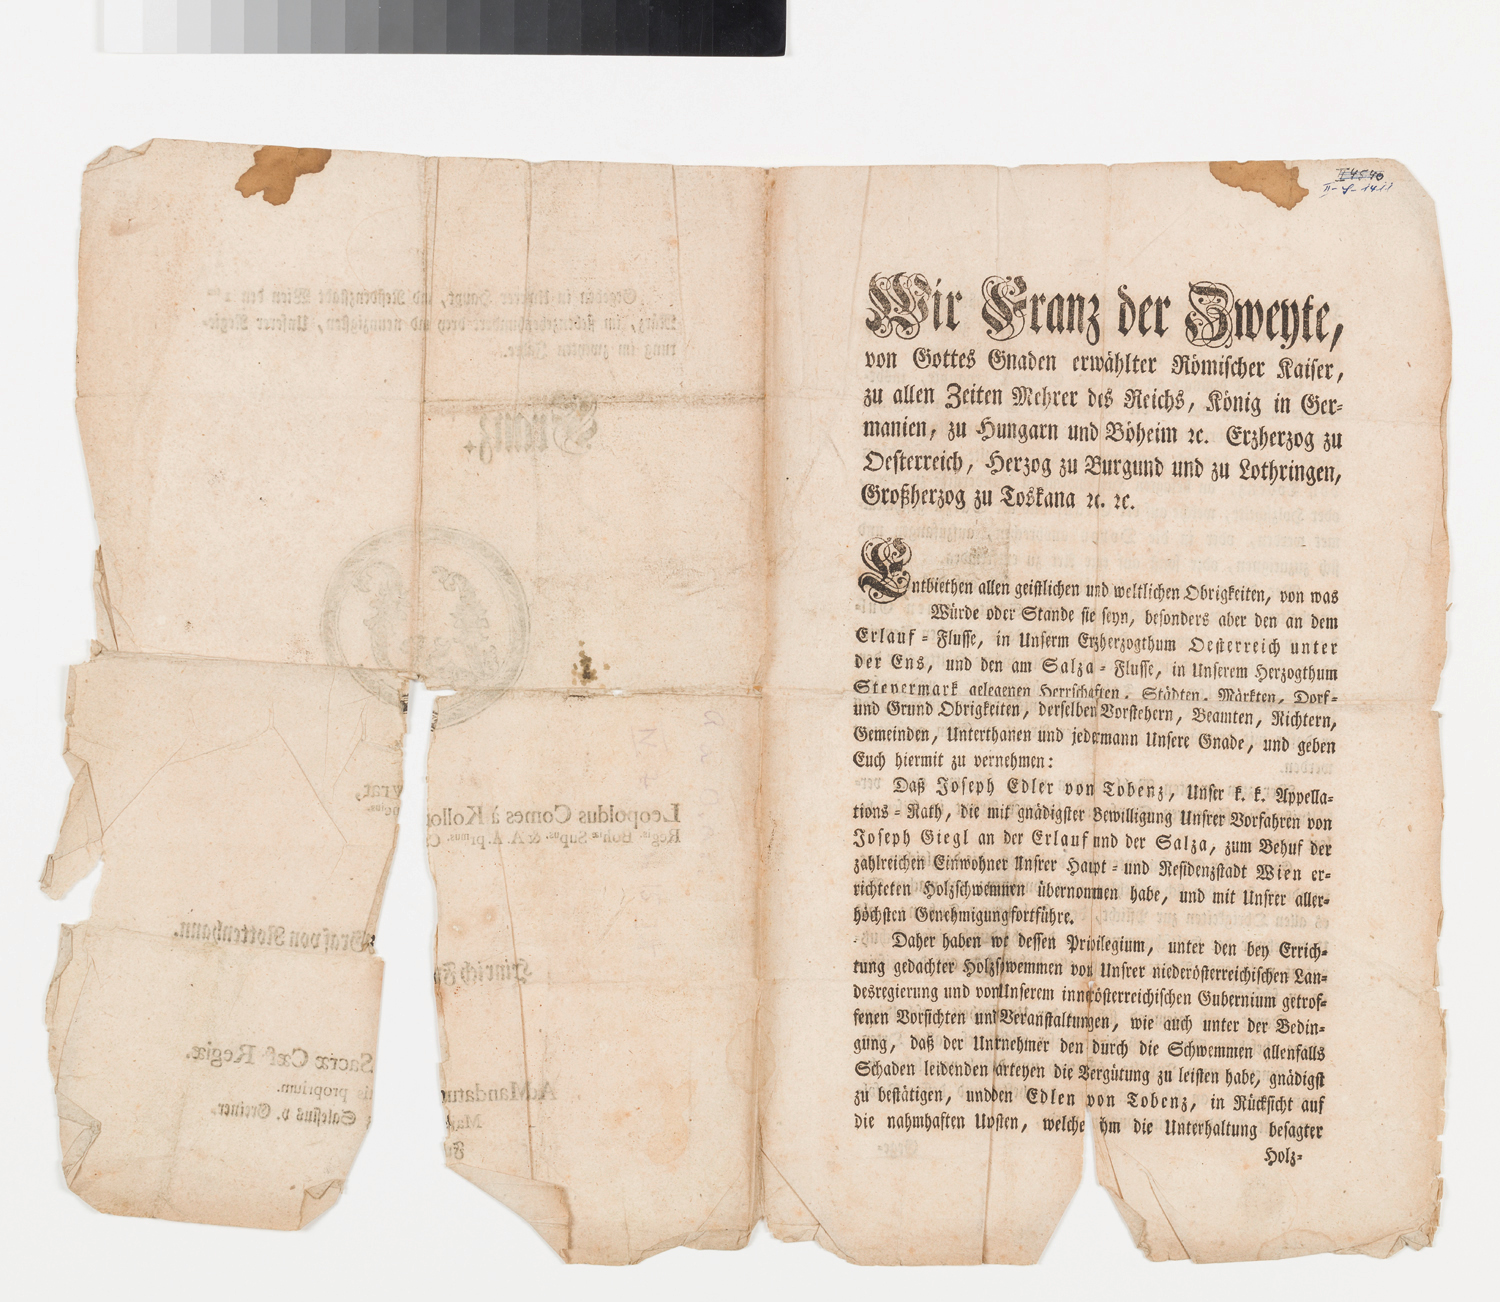 II 4540
II-J-1411
Wir Franz der Zweyte,
von Gottes Gnaden erwählter Römischer Kaiser,
zu allen Zeiten Mehrer des Reichs, König in Ger-
manien, zu Hungarn und Böheim ꝛc. Erzherzog zu
Oesterreich, Herzog zu Burgund und zu Lothringen,
Großherzog zu Toskana ꝛc. ꝛc.
Entbiethen allen geistlichen und weltlichen Obrigkeiten, von was
Würde oder Stande sie seyn, besonders aber den an dem
Erlauf-Flusse, in Unserm Erzherzogthum Oesterreich unter
der Ens, und den am Salza-Flusse, in Unserem Herzogthum
Steyermark gelegenen Herrschaften, Städten, Märkten, Dorf-
und Grund Obrigkeiten, derselben Vorstehern, Beamten, Richtern,
Gemeinden, Unterthanen und jedermann Unsere Gnade, und geben
Euch hiermit zu vernehmen:
Daß Joseph Edler von Tobenz, Unser k. k. Appella-
tions-Rath, die mit gnädigster Bewilligung Unsrer Vorfahren von
Joseph Giegl an der Erlauf und der Salza, zum Behuf der
zahlreichen Einwohner Unsrer Haupt- und Residenzstadt Wien er-
richteten Holzschwemmen übernommen habe, und mit Unsrer aller-
höchsten Genehmigung fortführe.
Daher haben wir dessen Privilegium, unter den bey Errich-
tung gedachter Holzschwemmen von Unsrer niederösterreichischen Lan-
desregierung und von Unserem innerösterreichischen Gubernium getrof-
fenen Vorsichten und Veranstaltungen, wie auch unter der Bedin-
gung, daß der Unternehmer den durch die Schwemmen allenfalls
Schaden leidenden Parteyen die Vergütung zu leisten habe, gnädigst
zu bestätigen, und den Edlen von Tobenz, in Rücksicht auf
die nahmhaften Unkosten, welche ihm die Unterhaltung besagter
Holz-